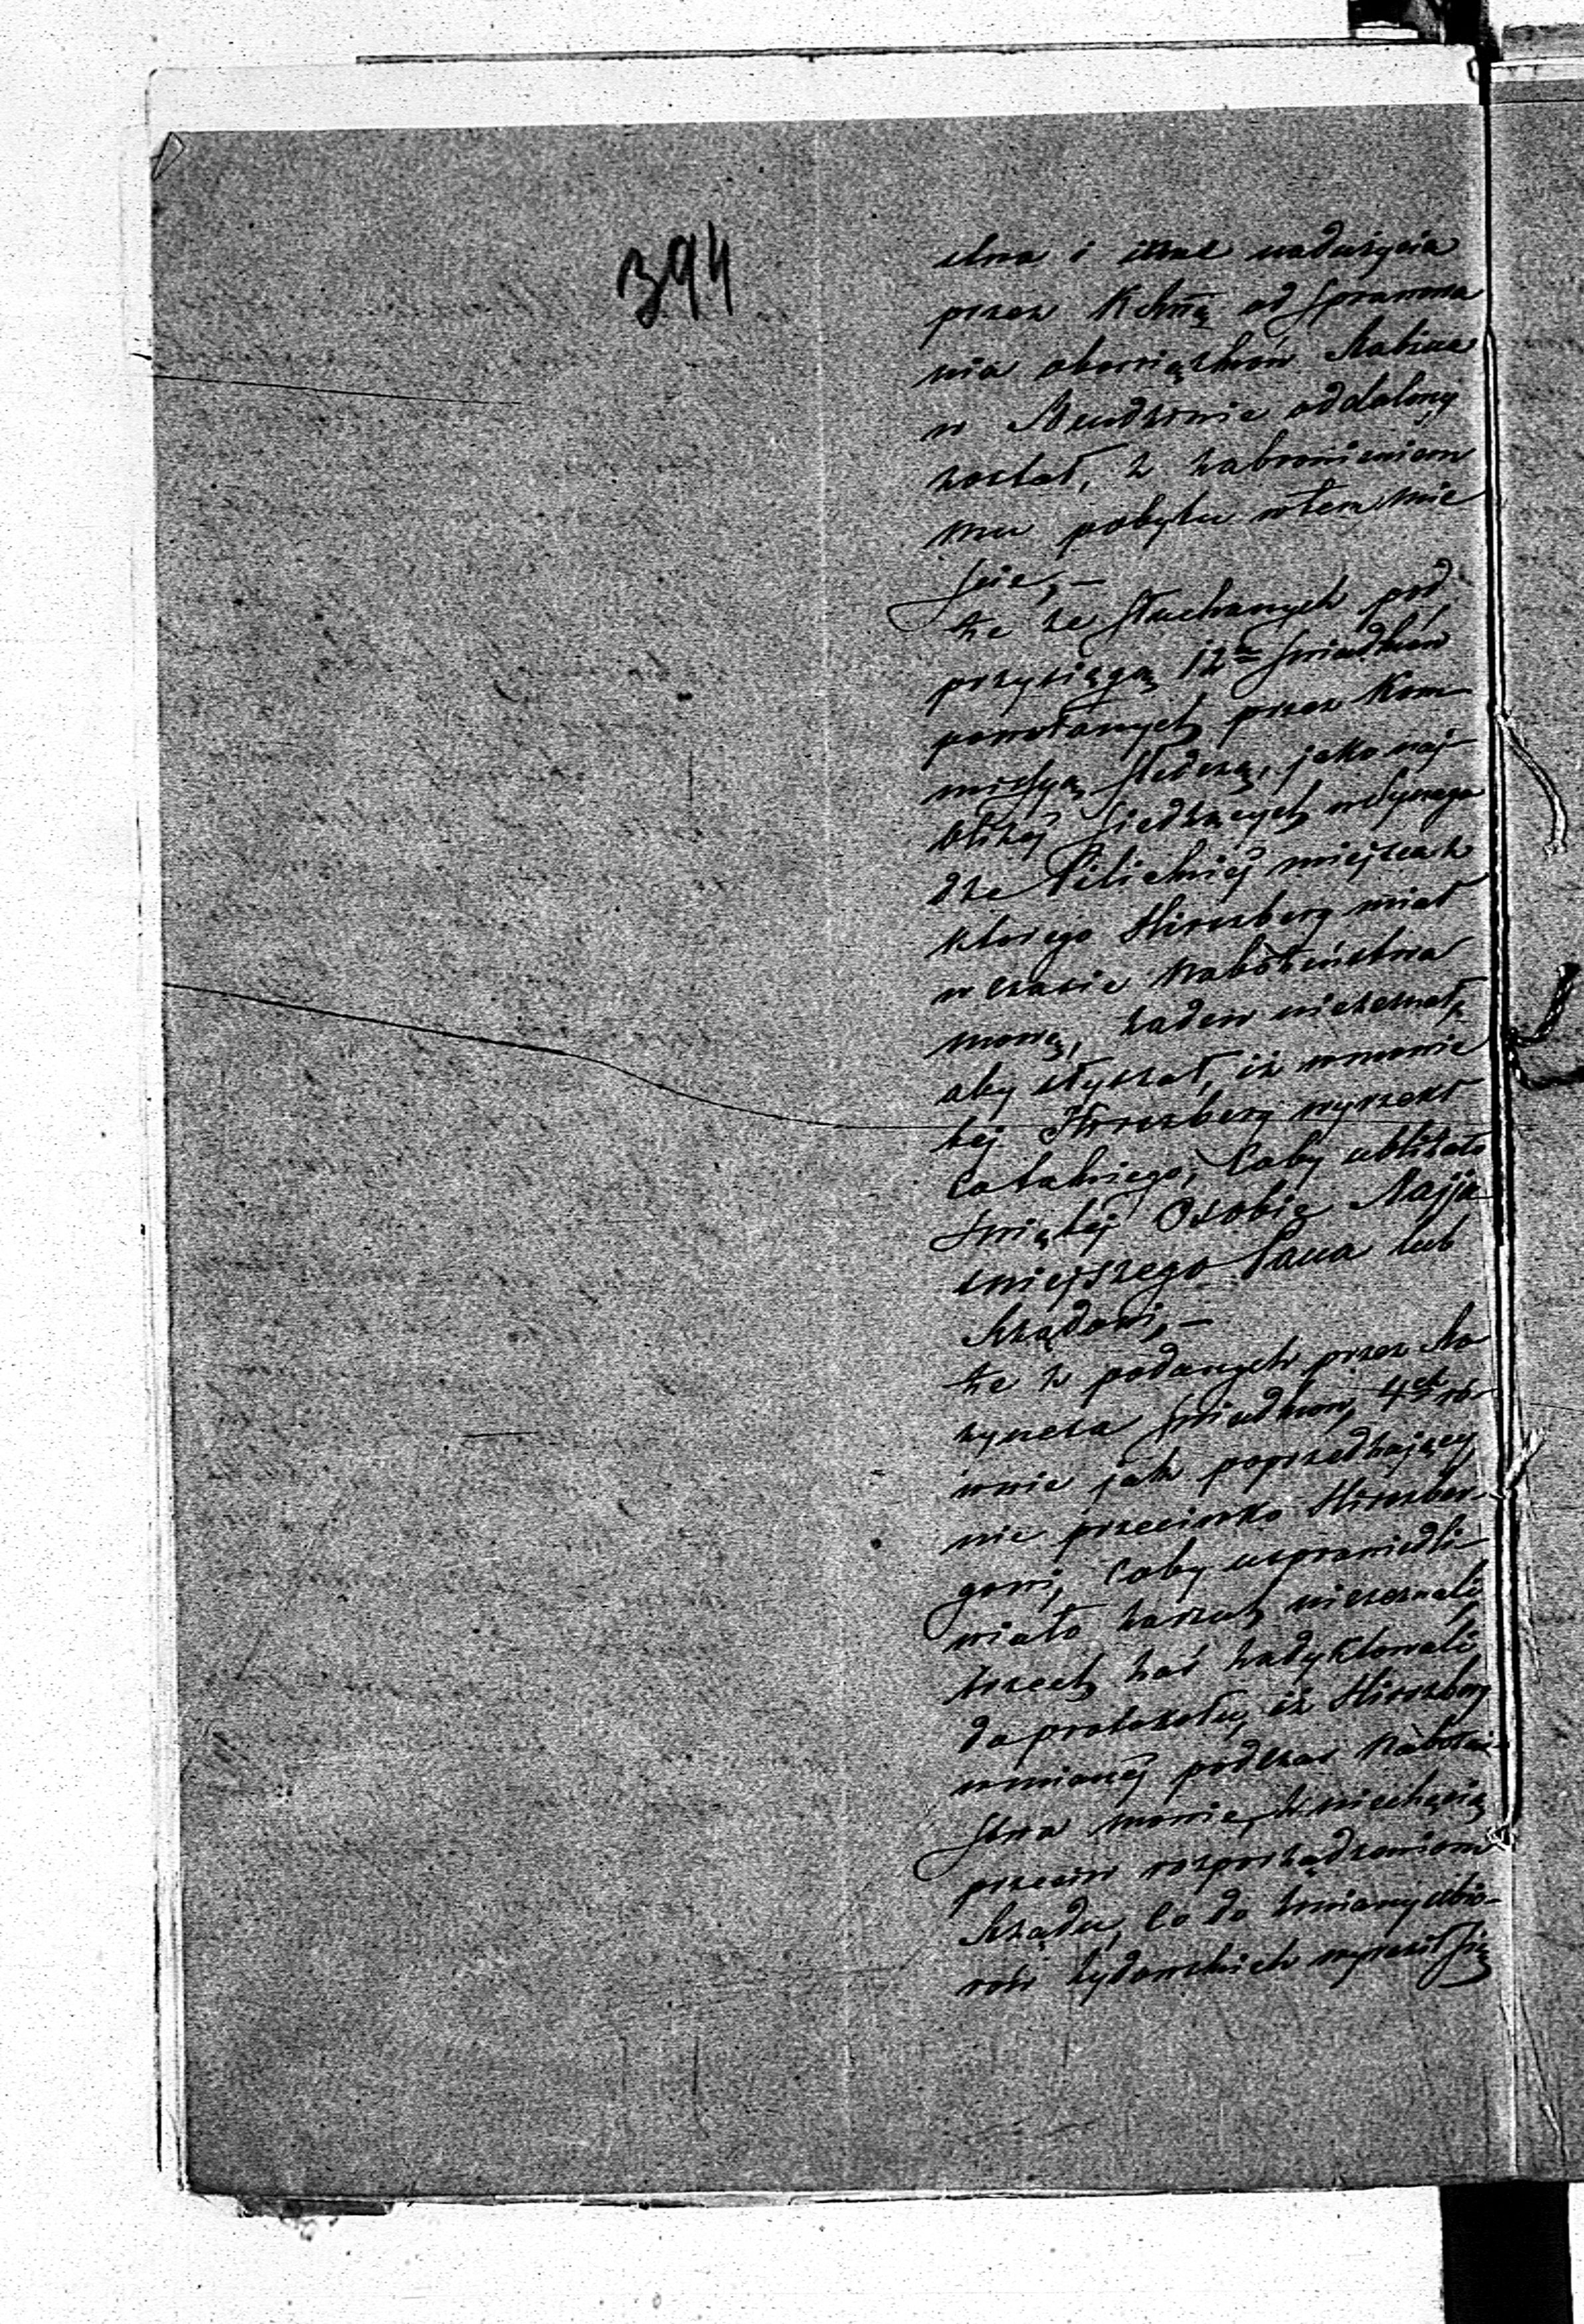 394
stwa i inne nadużycia
przez Kommą od sprawowa
nia obowiązków Rabina
w oddalony
został, z zabronieniem
mu pobytu w tem mie
ście, –
że ze słuchanych pod
przysięgą 12tu świadków
powołanych przez Kom-
missyą śledczą, jako naj-
bliżej siedzących w Synago
dze Pilickiej miejsca z
którego Hirszberg miał
w czasie nabożeństwa
mowę, żaden niezeznał,
aby słyszał, iż w mowie
tej Hirszberg wyrzekł
co takiego, coby ubliżało
Świętej Osobie Najja
śniejszego Pana lub
Rządowi, –
że z podanych przez
świadków, 4ch ró-
wnie jak poprzedzający,
nic przeciwko Hirszber-
gowi, coby usprawiedli-
wiało zarzut, niezeznali,
trzech zaś zadyktowali
do protokołu, iż Hirszberg
w mianej podczas nabożeń-
stwa mowie, z niechęcią
przeciw rozporządzeniom
Rządu, co do zmiany ubio-
rów żydowskich wyraził się